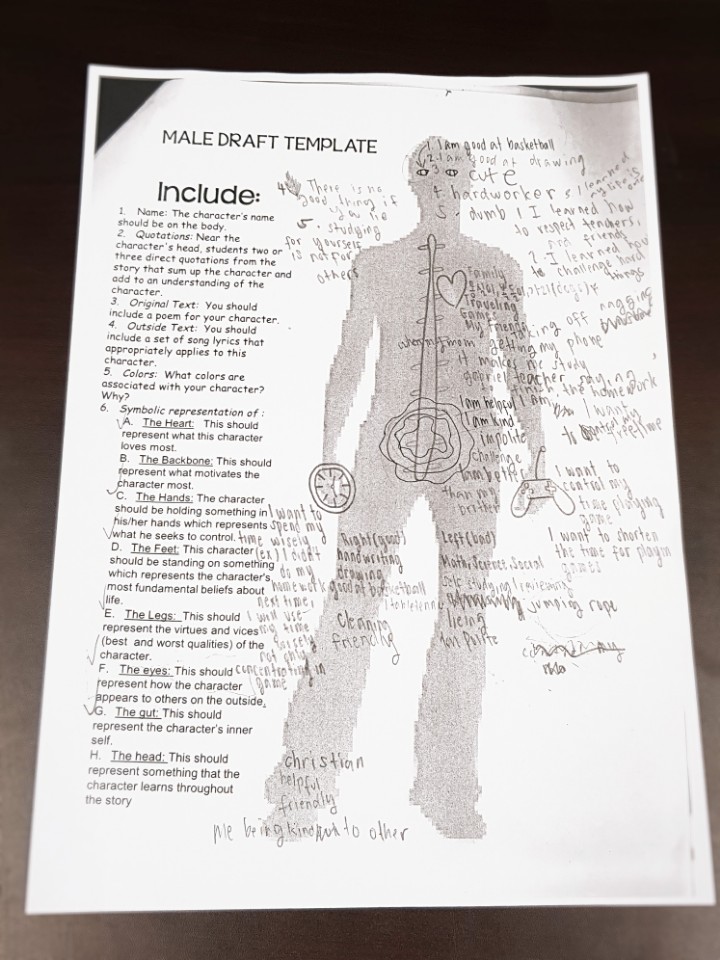 MALE DRAFT TEMPLATE
Include:
1. Name: The character's name
should be on the body.
2. Quotations: Near the
character's head, students two or
three direct quotations from the
story that sum up the character and
add to an understanding of the
character.
3. Original Text: You should
include a poem for your character.
4. Outside Text: You should
include a set of song lyrics that
appropriately applies to this
character.
5. Colors: What colors are
associated with your character?
Why?
6. Symbolic representation of:
A. The Heart: This should
represent what this character
loves most.
B. The Backbone: This should
represent what motivates the
character most.
C. The Hands: The character
should be holding something in
his/her hands which represents
what he seeks to control.
D. The Feet: This character
should be standing on something
which represents the character's
most fundamental beliefs about
life.
E. The Legs: This should
represent the virtues and vices
(best and worst qualities) of the
character.
F. The eyes: This should
represent how the character
appears to others on the outside.
G. The gut: This should
represent the character's inner
self.
H. The head: This should
represent something that the
character learns throughout
the story
1. I am good at basketball
2. I am good at drawing
3
cute
4. hardworker
5. dumb
1 I learned how
to respect teachers,
and friends
2. I learned how
to challenge hard
things
4. There is no
good thing if
you lie
5. studying
for yourself
is not for
others
Family
Traveling
Games
My friends
nagging
taking off
getting my phone
mom
it makes me study
gabriel teacher saying
to finish the homework
I am helpful
I am kind
I am
impolite
challenge
I am better
than my
brother
I want
to control my
freetime
I want to
control my
time playing
game
I want to shorten
the time for playing
games
I want to
spend my
time wisely
(ex) I didn't
do my
homework
next time,
I will use
my time
wisely
not only
concentrating in
game
Right(good)
handwriting
drawing
good at basketball
Cleaning
friendly
Left(bad)
Math, Science, Social
self studying/reviewing
jumping rope
lying
christian
helpful
friendly
me being kind to other